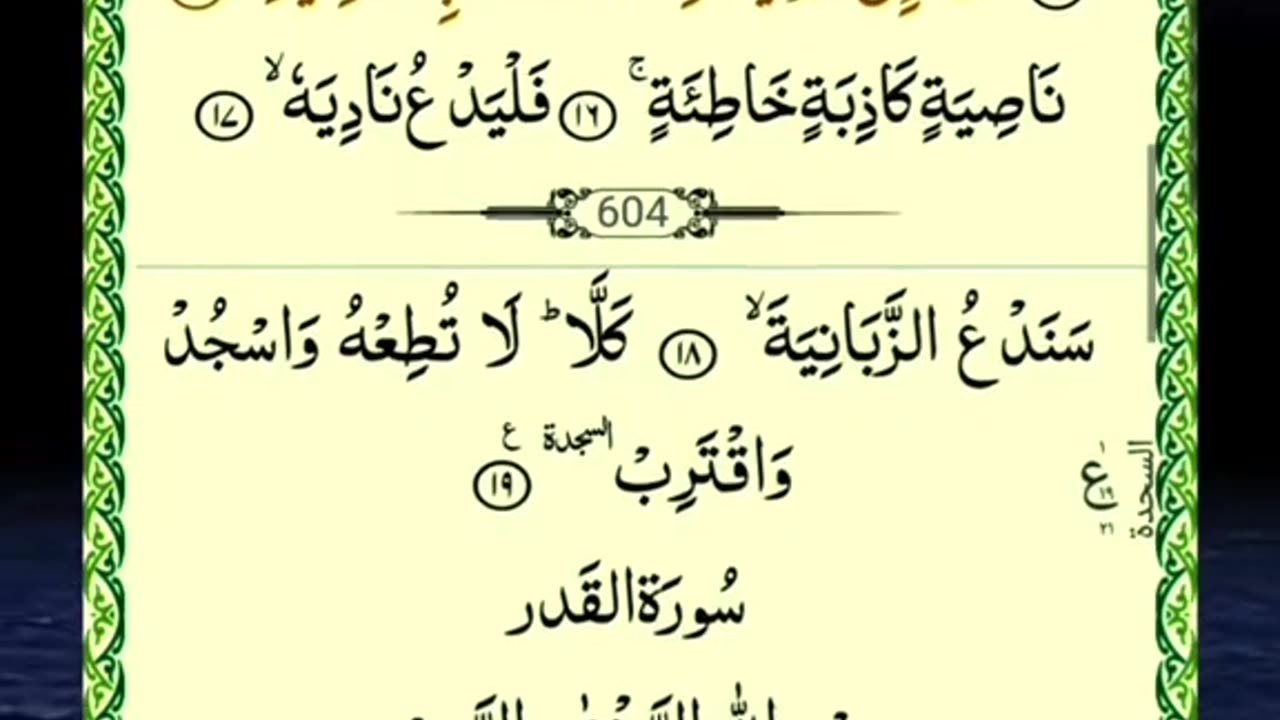 نَاصِيَةٍ كَاذِبَةٍ خَاطِئَةٍ ۚ ﴿١٦﴾ فَلْيَدْعُ نَادِيَهٗ ۙ ﴿١٧﴾
604
سَنَدْعُ الزَّبَانِيَةَ ۙ ﴿١٨﴾ كَلَّا ؕ لَا تُطِعْهُ وَاسْجُدْ
وَاقْتَرِبْ السجدة ع ﴿١٩﴾
١ ع ١٩ ٢١ السجدة
سُورَةالقَدر